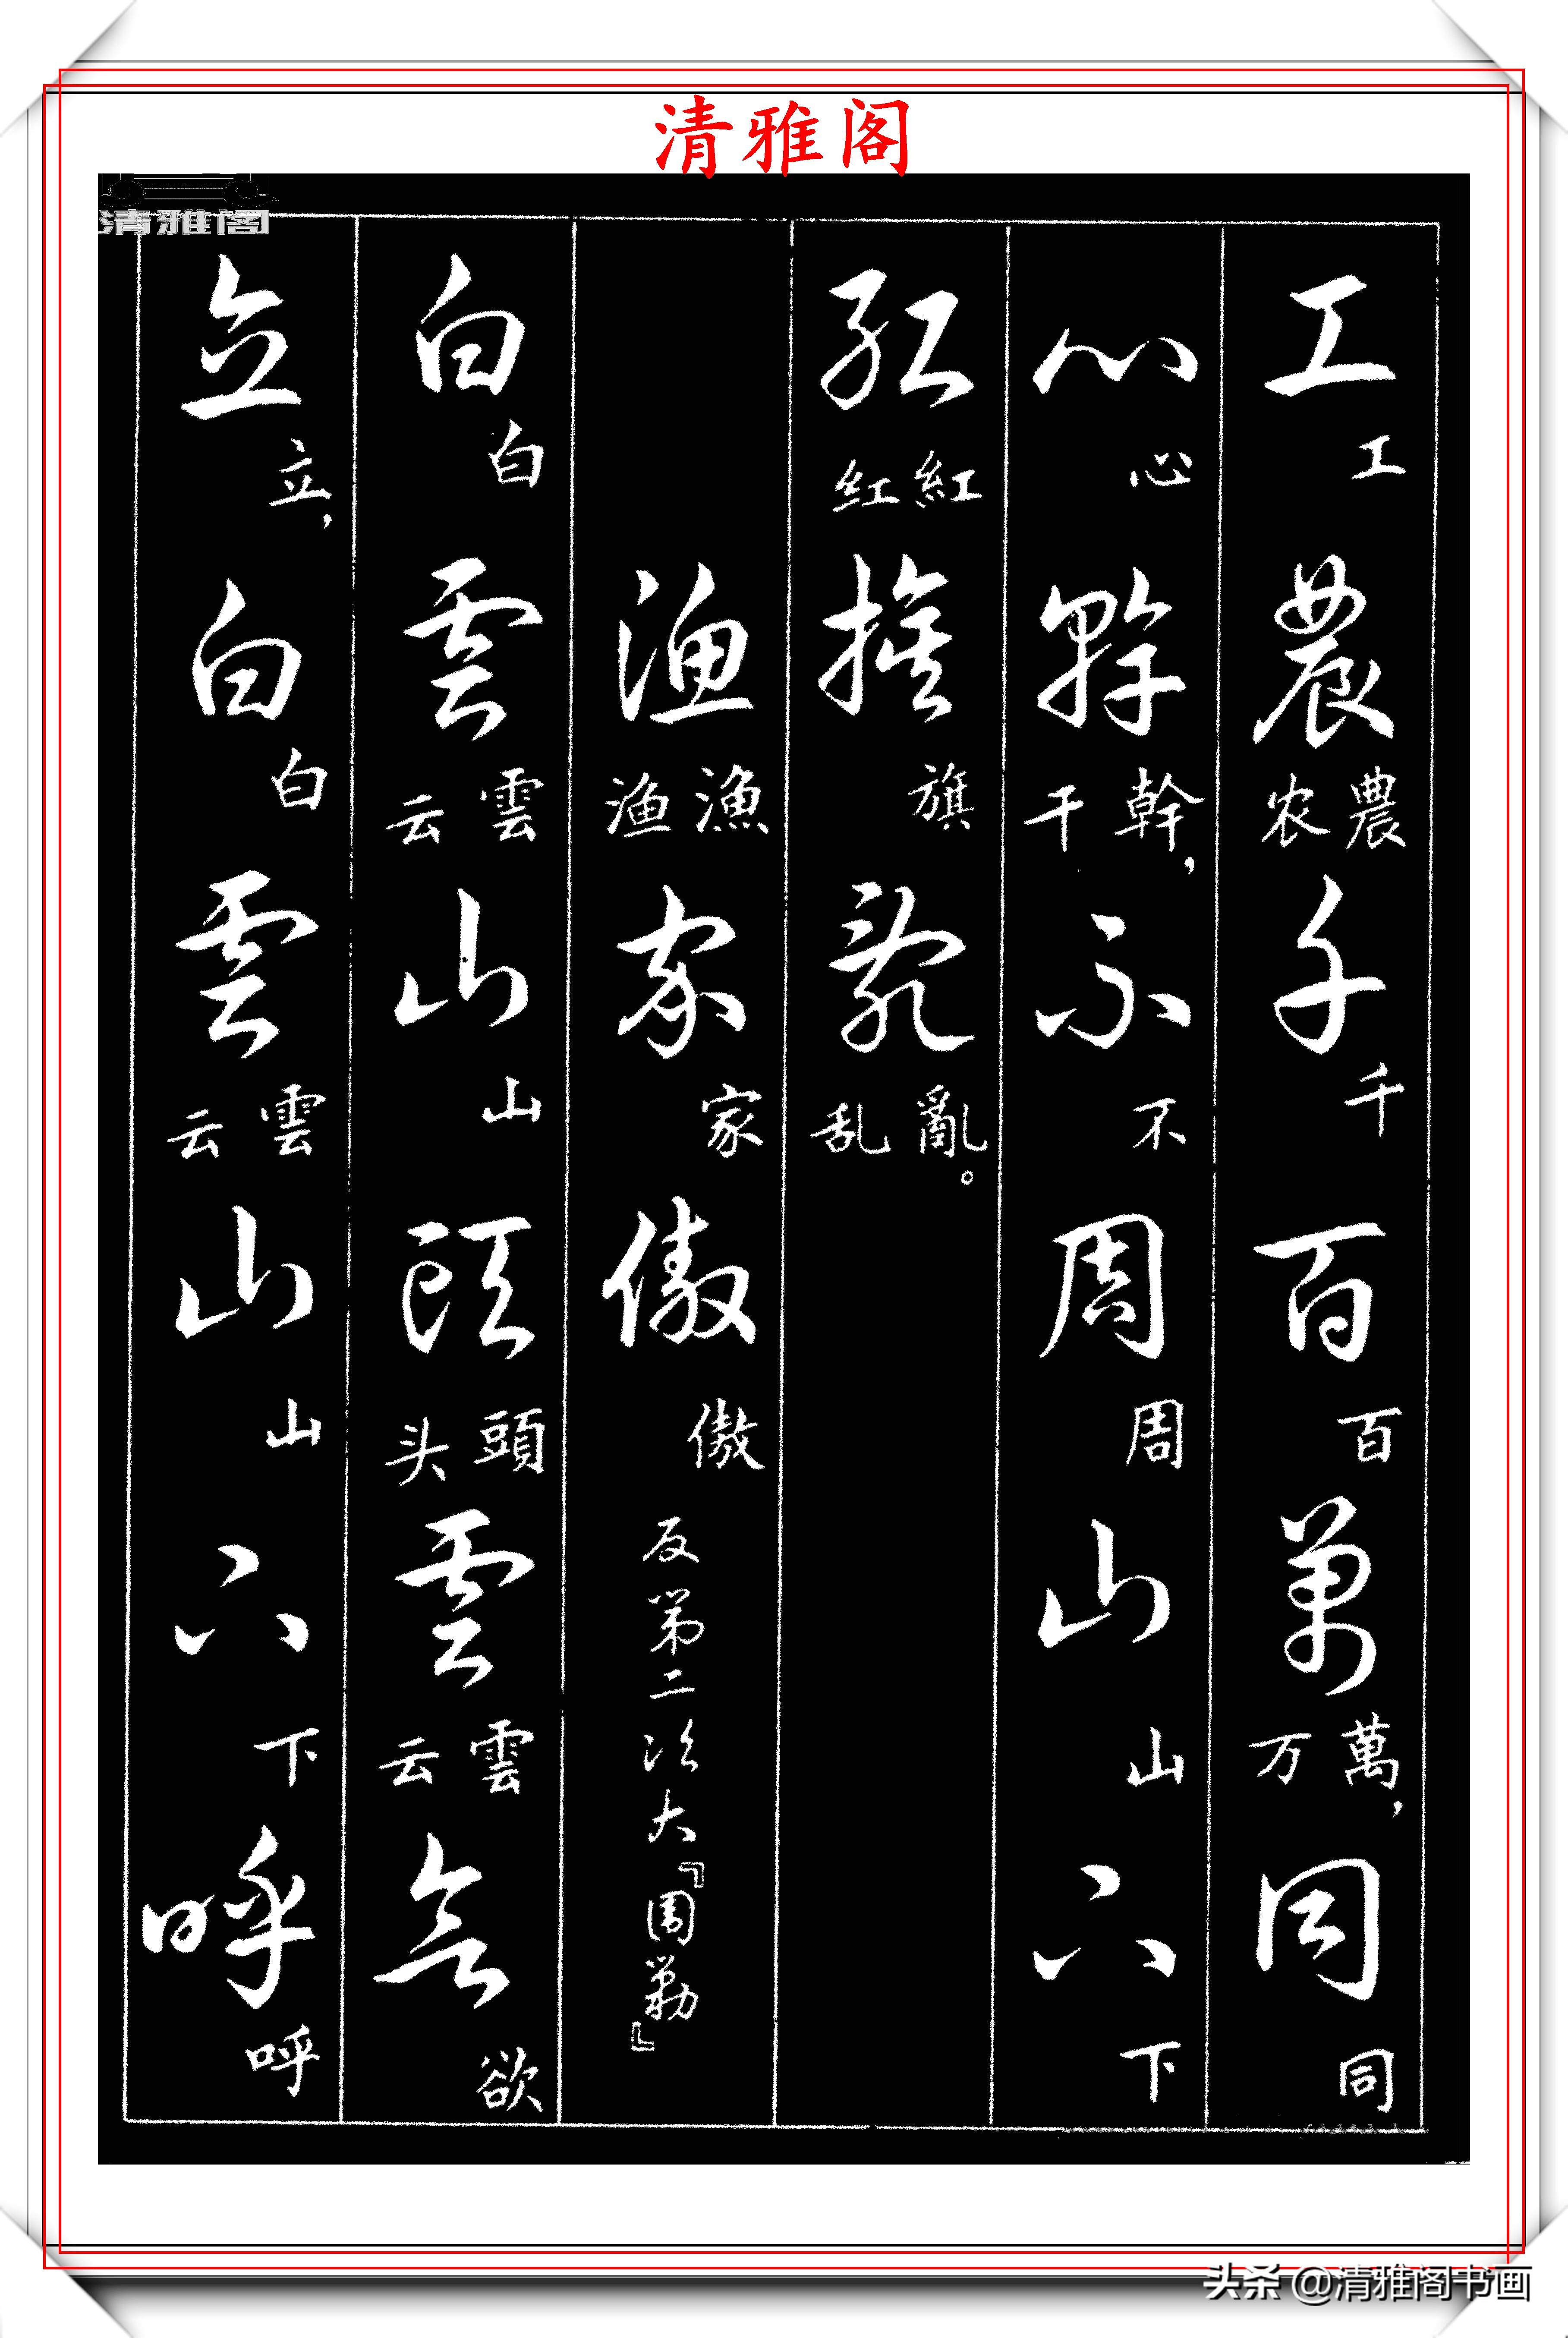 清雅阁
清雅阁
工工農農农千千百百萬萬，万同同
心心幹幹，干不不周周山山下下
紅紅红旗旗亂亂。乱
渔漁渔家家傲傲反第二次大『围勦』
白白雲雲云山山頭頭头雲雲云欲欲
立立，白白雲雲云山山下下呼呼
头条 @清雅阁书画